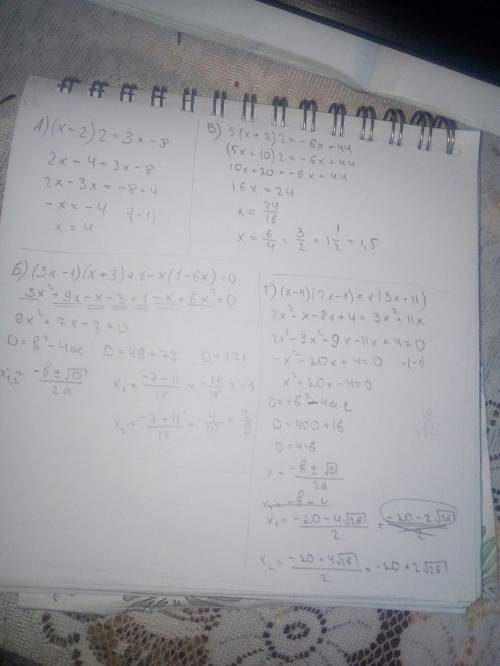 А) (x-2)2=3x-8
2x-4=3x-8
2x-3x=-8+4
-x=-4 ·(-1)
x=4
В) 5(x+2)2=-6x+44
(5x+10)2=-6x+44
10x+20=-6x+44
16x=24
x=24/16
x=6/4=3/2=1 1/2=1,5
Б) (3x-1)(x+3)+1-x(1-6x)=0
3x²+9x-x-3+1-x+6x²=0
9x²+7x-2=0
D=в²-4ac D=49+72 D=121
x₁,₂=(-в±√D)/2a x₁=(-7-11)/18=-18/18=-1
x₂=(-7+11)/18=4/18=2/9
Г) (x-4)(2x-1)=x(3x+11)
2x²-x-8x+4=3x²+11x
2x²-3x²-9x-11x+4=0
-x²-20x+4=0 ·(-1)
x²+20x-4=0
D=в²-4ac
D=400+16
D=416
x=(-в±√D)/2a
x₁=(-20-4√26)/2=-20-2√26
x₂=(-20+4√26)/2=-20+2√26